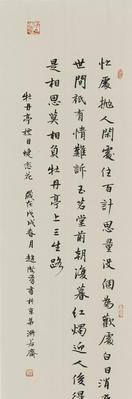 忙處拋人閑處住百計思量沒個為歡處白日消
世間祇有情難訴玉茗堂前朝復暮紅燭迎人俊得
是相思莫相負牡丹亭上三生路
牡丹亭標目蝶戀花 歲在戊戌春月趙 書於京華 齋